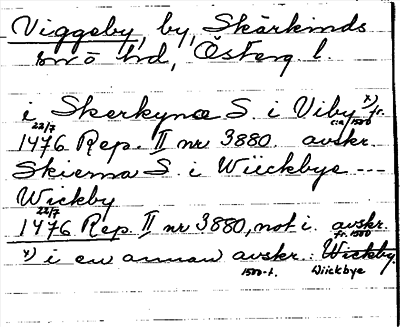 Viggeby, by, Skärkinds
sn o hd, Österg. l.
i Skerkynæ S. i Viby x) fr.
22/7 ca 1500
1476 Rep. II nr 3880. avskr.
Skierna S. i Wiickbye ---
Wickby
22/7
1476 Rep. II nr 3880, not i. avskr.
fr. 1500
x) i en annan avskr. : Wickby.
1500-t. Wiickbye